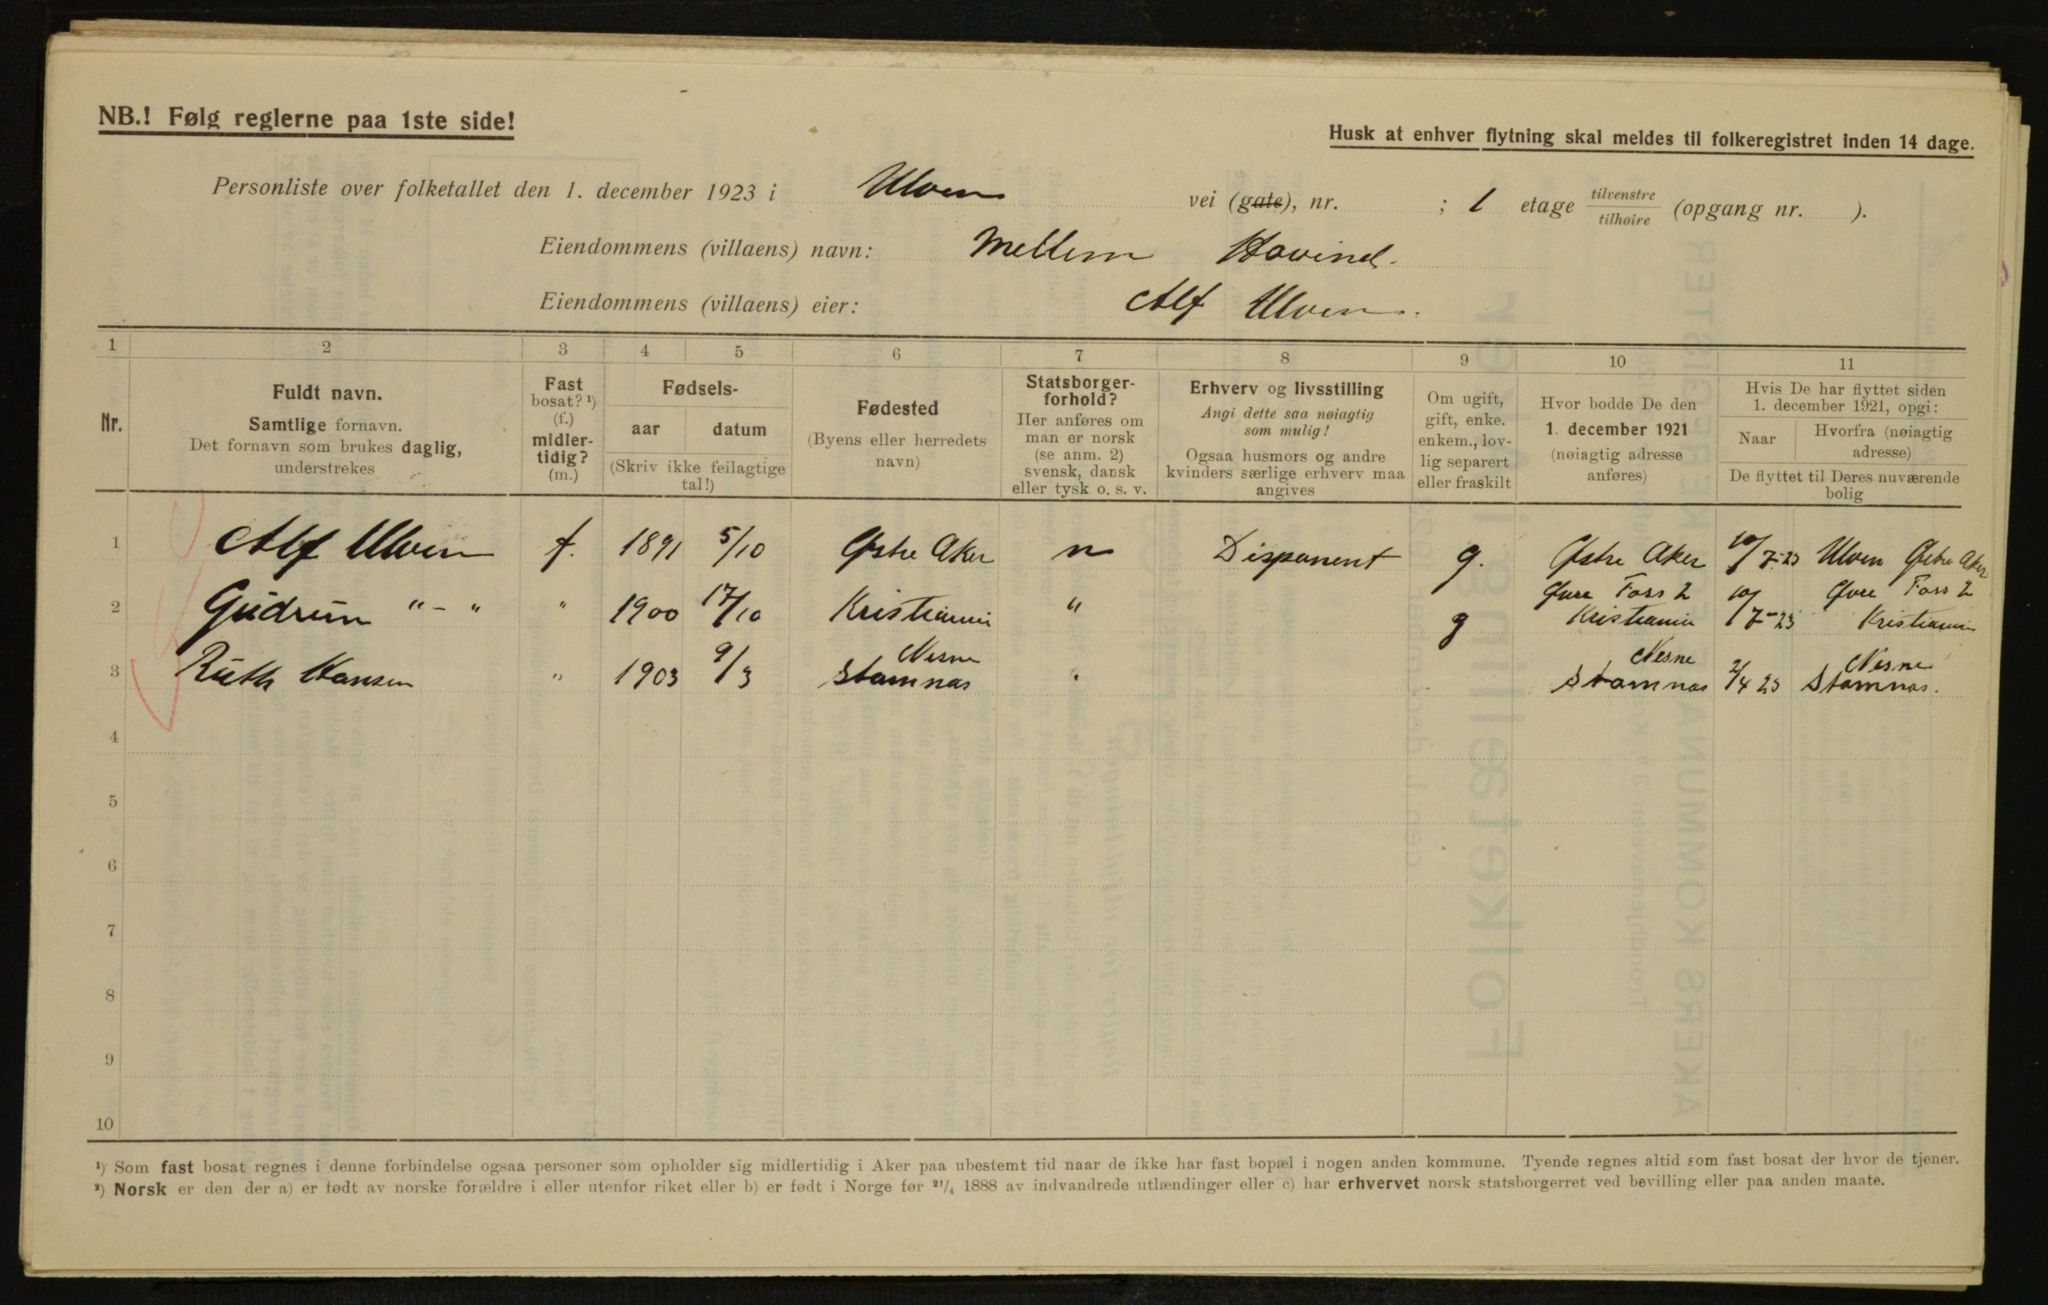 NB.! Følg reglerne paa 1ste side!
Husk at enhver flytning skal meldes til folkeregistret inden 14 dage.
Personliste over folketallet den 1. december 1923 i Ulven vei (gate), nr. ; 1 etage tilvenstre tilhøire (opgang nr. ).
Eiendommens (villaens) navn: Mellem Hovind.
Eiendommens (villaens) eier: Alf Ulven.
1 2 3 4 5 6 7 8 9 10 11
Nr.
Fuldt navn.
Samtlige fornavn.
Det fornavn som brukes daglig,
understrekes
Fast
bosat? ¹)
(f.)
midler-
tidig?
(m.)
Fødsels-
aar datum
(Skriv ikke feilagtige
tal!)
Fødested
(Byens eller herredets
navn)
Statsborger-
forhold?
Her anføres om
man er norsk
(se anm. 2)
svensk, dansk
eller tysk o. s. v.
Erhverv og livsstilling
Angi dette saa nøiagtig
som mulig!
Ogsaa husmors og andre
kvinders særlige erhverv maa
angives
Om ugift,
gift, enke.
enkem., lov-
lig separert
eller fraskilt
Hvor bodde De den
1. december 1921
(nøiagtig adresse
anføres)
Hvis De har flyttet siden
1. december 1921, opgi:
Naar
Hvorfra (nøiagtig
adresse)
De flyttet til Deres nuværende
bolig
1 Alf Ulven f. 1891 5/10 Østre Aker n Disponent g. Østre Aker 10/7-23 Ulven Østre Aker
2 Gudrun "-" " 1900 17/10 Kristiania " g Øvre Foss 2 Kristiania 10/7-23 Øvre Foss 2 Kristiania
3 Ruth Hansen " 1903 9/3 Nesne Stamnas " Nesne Stamnas 2/4 23 Nesne Stamnas.
4
5
6
7
8
9
10
¹) Som fast bosat regnes i denne forbindelse ogsaa personer som opholder sig midlertidig i Aker paa ubestemt tid naar de ikke har fast bopæl i nogen anden kommune. Tyende regnes altid som fast bosat der hvor de tjener.
²) Norsk er den der a) er født av norske forældre i eller utenfor riket eller b) er født i Norge før 21/4 1888 av indvandrede utlændinger eller c) har erhvervet norsk statsborgerret ved bevilling eller paa anden maate.